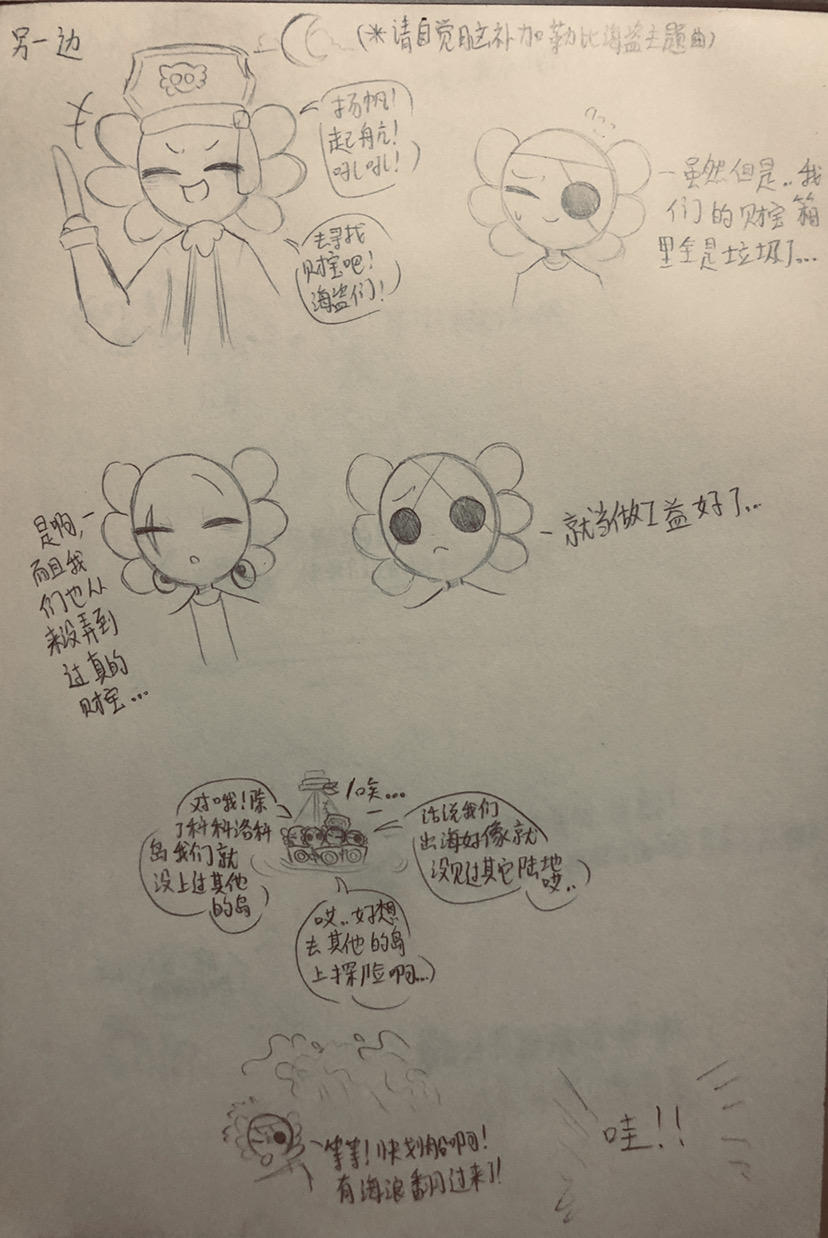 另一边
(*请自觉脑补加勒比海盗主题曲)
扬帆!
起航!
吼吼!
去寻找
财宝吧!
海盗们!
虽然但是..我
们的财宝箱
里全是垃圾了...
是啊,
而且我
们也从
来没弄到
过真的
财宝...
就当做工益好了...
对哦!除
了科科洛科
岛我们就
没上过其他
的岛
唉...
话说我们
出海好像就
没见过其它陆地
哎..
哎..好想
去其他的岛
上探险啊...
等等!快划船啊!
有海浪翻过来了!
哇!!